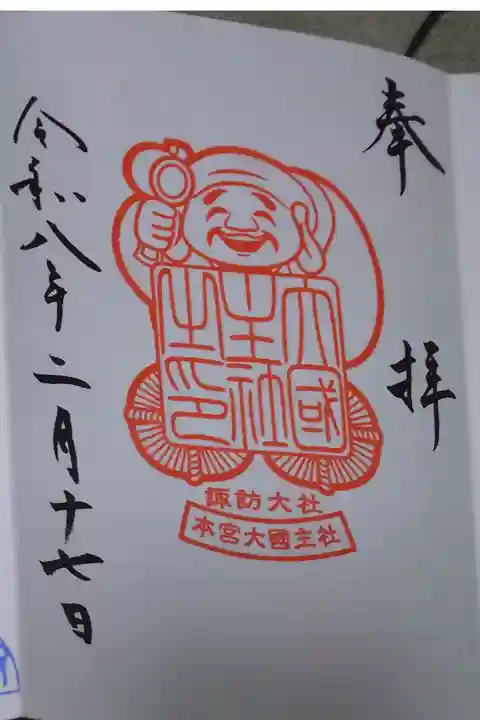 奉拝
大國
主社
之印
諏訪大社
本宮大國主社
令和八年二月十七日